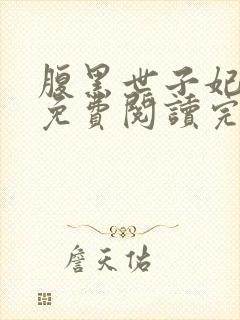 腹黑世子妃
免費閱讀完
詹天佑